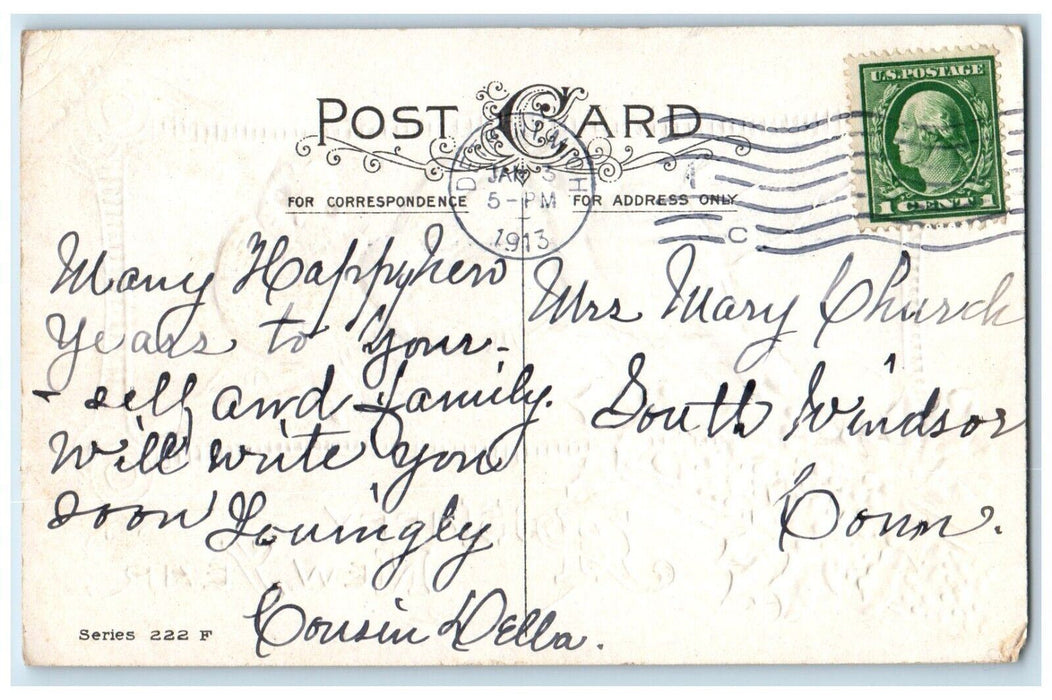 POST CARD
U.S. POSTAGE
1 CENT 1
JAN 3
5-PM
1913
C
FOR CORRESPONDENCE
FOR ADDRESS ONLY
Many Happy New
Years to Your-
-self and family.
Will write you
soon Lovingly
Cousin Della.
Mrs Mary Church
South Windsor
Conn.
Series 222 F
NEW YEAR